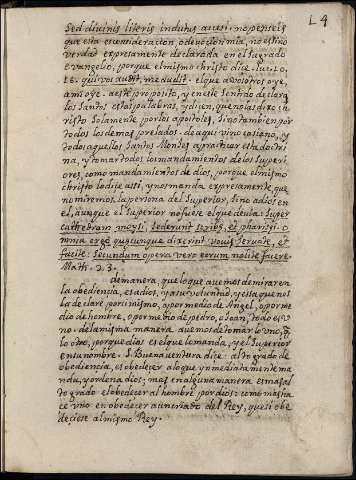 L4
Sed divinis literis indutus accesi. no penseis
que esta es consideracion, o devocion mia, no es sino
verdad expresamente declarada en el Sagrado
evangelio, porque el mismo christo dice. luc. 10.
qui vos audit, me audit. el que a vosotros oye,
a mi oye. a este proposito, y en este Sentido declara
los Santos estas palabras, y dicen, que no las dixo ch
risto Solamente por los apostoles, Sino tambien por
todos los demas prelados. de aqui vino casiano, y
todos aquellos Santos Monjes a praticar esta doctri
na, y tomar todos los mandamientos de los Superi
ores, como mandamientos de dios, porque el mismo
christo lo dice assi, y nos manda expresamente que
no miremos la persona del Superior, Sino a dios en
el, aunque el Superior no fuese el que devia: Super
cathedram moysi, Sederunt scribę, et pharisęi. O
mnia ergo quęcunque dixerint vobis Servate, et
facite: Secundum opera vero eorum nolite facere.
Math. 23.
de manera, que lo que avemos de mirar en
la obediencia, es a dios, y a su voluntad, y esta que nos
la declare por si mismo, o por medio de Angel, o por me
dio de hombre, o por medio de pedro, o Joan, todo es v
no. de la misma manera avemos de tomar lo vno, q̃
lo otro, porque dios es el que lo manda, y el Superior
en su nombre. S. Buenaventura dice: alto grado de
obediencia, es obedecer a lo que ynmediatamente ma
nda, y ordena dios; mas en alguna manera es mas al
to grado el obedecer al hombre por dios: como mas ha
ce vno en obedecer a un criado del Rey, que si obe
deciese al mismo Rey.